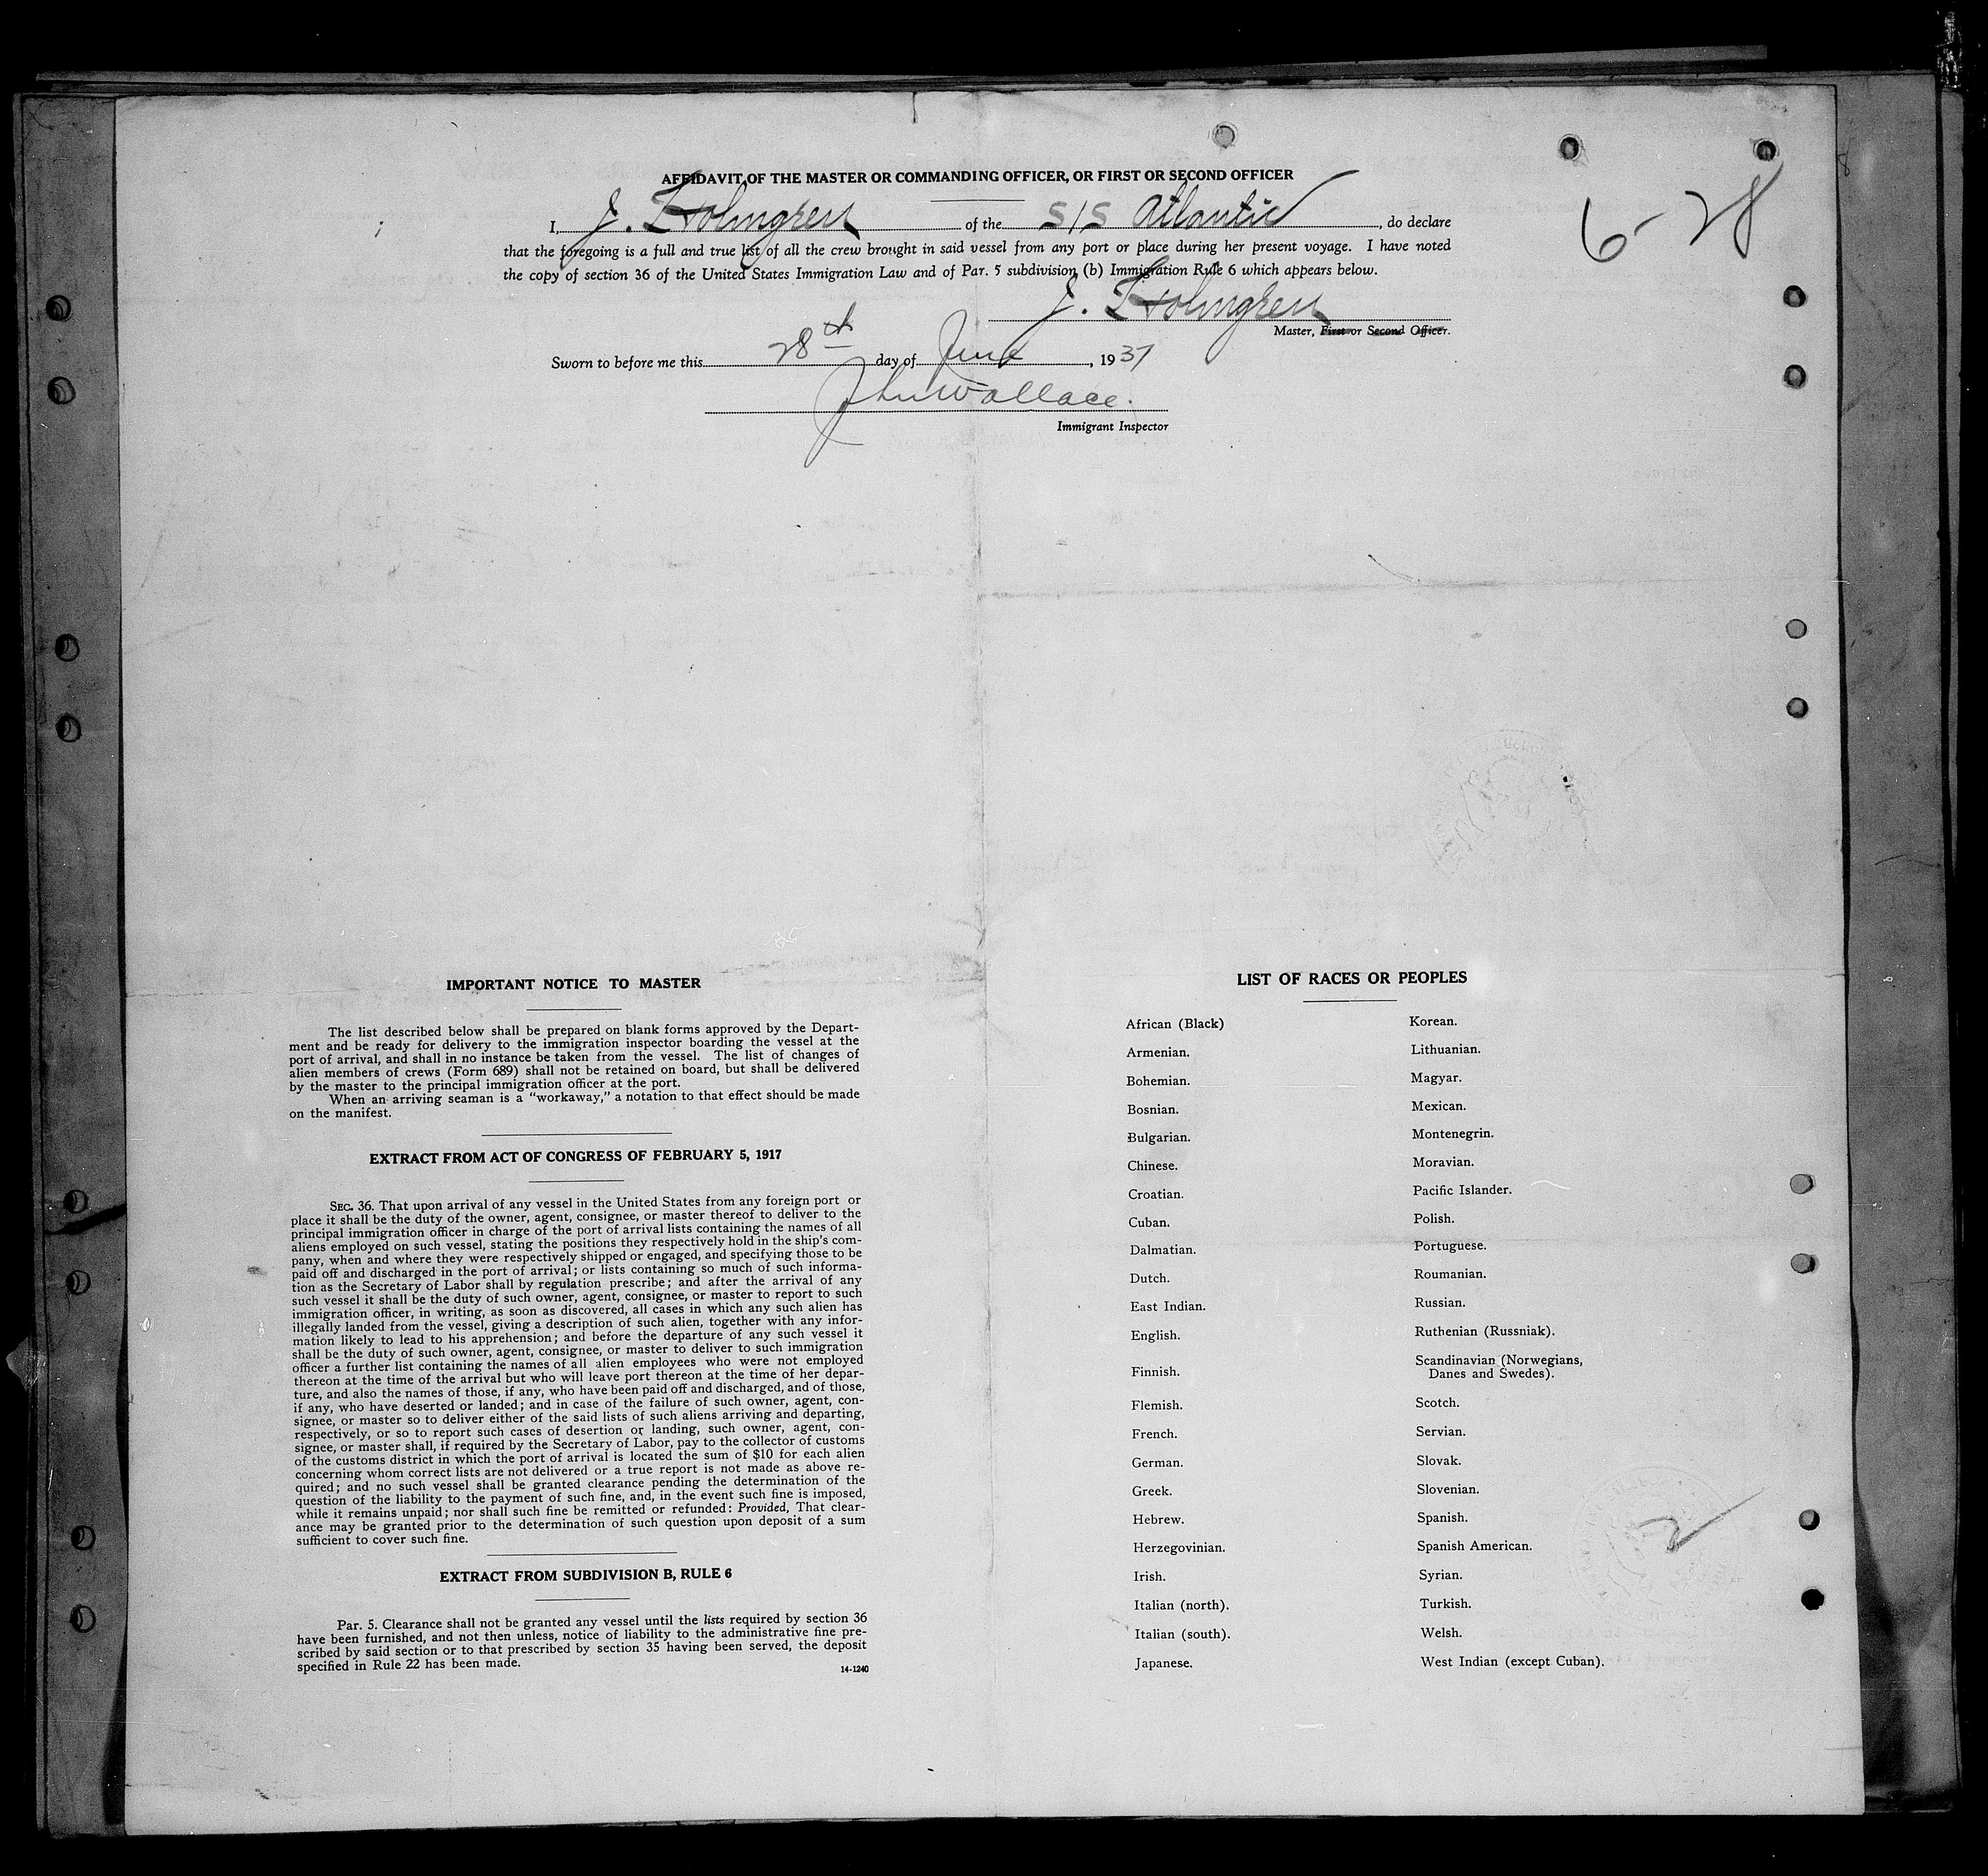 AFFIDAVIT OF THE MASTER OR COMMANDING OFFICER, OR FIRST OR SECOND OFFICER
6-28
I, J. Holmgren of the S/S Atlantic, do declare
that the foregoing is a full and true list of all the crew brought in said vessel from any port or place during her present voyage. I have noted
the copy of section 36 of the United States Immigration Law and of Par. 5 subdivision (b) Immigration Rule 6 which appears below.
J. Holmgren
Master, First or Second Officer.
Sworn to before me this 28th day of June, 1937
John Wallace.
Immigrant Inspector
IMPORTANT NOTICE TO MASTER
The list described below shall be prepared on blank forms approved by the Depart-
ment and be ready for delivery to the immigration inspector boarding the vessel at the
port of arrival, and shall in no instance be taken from the vessel. The list of changes of
alien members of crews (Form 689) shall not be retained on board, but shall be delivered
by the master to the principal immigration officer at the port.
When an arriving seaman is a "workaway," a notation to that effect should be made
on the manifest.
EXTRACT FROM ACT OF CONGRESS OF FEBRUARY 5, 1917
SEC. 36. That upon arrival of any vessel in the United States from any foreign port or
place it shall be the duty of the owner, agent, consignee, or master thereof to deliver to the
principal immigration officer in charge of the port of arrival lists containing the names of all
aliens employed on such vessel, stating the positions they respectively hold in the ship's com-
pany, when and where they were respectively shipped or engaged, and specifying those to be
paid off and discharged in the port of arrival; or lists containing so much of such informa-
tion as the Secretary of Labor shall by regulation prescribe; and after the arrival of any
such vessel it shall be the duty of such owner, agent, consignee, or master to report to such
immigration officer, in writing, as soon as discovered, all cases in which any such alien has
illegally landed from the vessel, giving a description of such alien, together with any infor-
mation likely to lead to his apprehension; and before the departure of any such vessel it
shall be the duty of such owner, agent, consignee, or master to deliver to such immigration
officer a further list containing the names of all alien employees who were not employed
thereon at the time of the arrival but who will leave port thereon at the time of her depar-
ture, and also the names of those, if any, who have been paid off and discharged, and of those,
if any, who have deserted or landed; and in case of the failure of such owner, agent, con-
signee, or master so to deliver either of the said lists of such aliens arriving and departing,
respectively, or so to report such cases of desertion or landing, such owner, agent, con-
signee, or master shall, if required by the Secretary of Labor, pay to the collector of customs
of the customs district in which the port of arrival is located the sum of $10 for each alien
concerning whom correct lists are not delivered or a true report is not made as above re-
quired; and no such vessel shall be granted clearance pending the determination of the
question of the liability to the payment of such fine, and, in the event such fine is imposed,
while it remains unpaid; nor shall such fine be remitted or refunded: Provided, That clear-
ance may be granted prior to the determination of such question upon deposit of a sum
sufficient to cover such fine.
EXTRACT FROM SUBDIVISION B, RULE 6
Par. 5. Clearance shall not be granted any vessel until the lists required by section 36
have been furnished, and not then unless, notice of liability to the administrative fine pre-
scribed by said section or to that prescribed by section 35 having been served, the deposit
specified in Rule 22 has been made.
14-1240
LIST OF RACES OR PEOPLES
African (Black)
Armenian.
Bohemian.
Bosnian.
Bulgarian.
Chinese.
Croatian.
Cuban.
Dalmatian.
Dutch.
East Indian.
English.
Finnish.
Flemish.
French.
German.
Greek.
Hebrew.
Herzegovinian.
Irish.
Italian (north).
Italian (south).
Japanese.
Korean.
Lithuanian.
Magyar.
Mexican.
Montenegrin.
Moravian.
Pacific Islander.
Polish.
Portuguese.
Roumanian.
Russian.
Ruthenian (Russniak).
Scandinavian (Norwegians,
Danes and Swedes).
Scotch.
Servian.
Slovak.
Slovenian.
Spanish.
Spanish American.
Syrian.
Turkish.
Welsh.
West Indian (except Cuban).
2